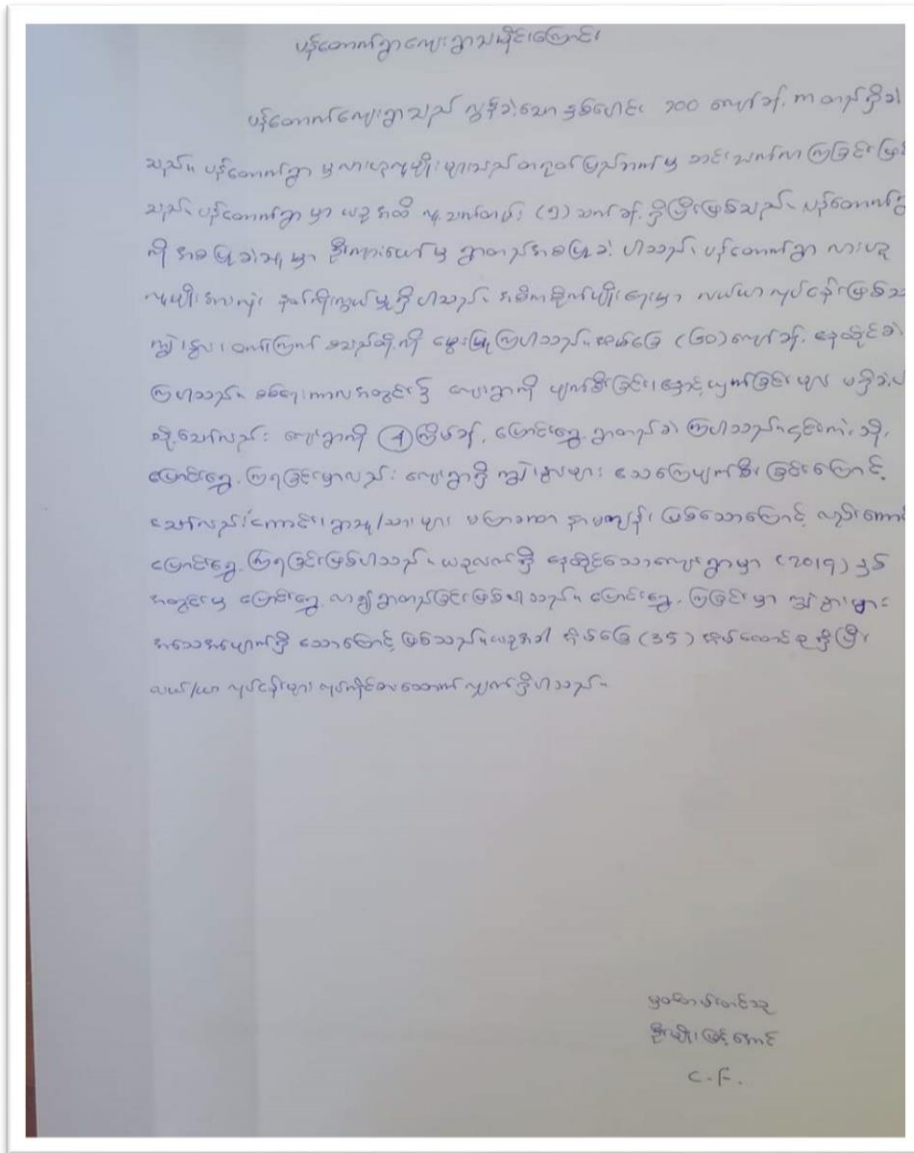 ပန်တောက်ရွာကျေးရွာသမိုင်းကြောင်း
ပန်တောက်ကျေးရွာသည် လွန်ခဲ့သော နှစ်ပေါင်း ၁၀၀ ကျော်ခန့် က တည်ရှိခဲ့
သည်။ ပန်တောက်ရွာ မှ လားဟူလူမျိုး များသည် တရုတ်ပြည်ဘက်မှ ဆင်းသက်လာကြခြင်း
သည်။ ပန်တောက်ရွာ မှာ ယခု အထိ လူ့သက်တမ်း (၅) သက်ခန့် ရှိပြီးဖြစ်သည်။ ပန်တောက်
ကို အစပြုခဲ့သူ မှာ ဦးကျားပေါ်မှ ရွာတည်အစပြုခဲ့ ပါသည်။ ပန်တောက်ရွာ လားဟူ
လူမျိုး အားလုံး နတ်ကိုးကွယ်မှု ရှိပါသည်။ အဓိကစိုက်ပျိုးရေးမှာ လယ်ယာလုပ်ငန်းဖြစ်
ကျွဲ၊ နွား၊ ဝက်၊ကြက် စသည်တို့ကို မွေးမြူကြပါသည်။ အိမ်ခြေ (၆၀) ကျော်ခန့် နေထိုင်ခဲ့
ကြပါသည်။ စစ်ရေးကာလအတွင်း၌ ကျေးရွာကို ဖျက်စီးခြင်း၊ နှောင့်ယှက်ခြင်းများ မရှိခဲ့
သို့သော်လည်း ကျေးရွာကို (၂)ကြိမ်ခန့် ပြောင်းရွှေ့ ရွာတည်ခဲ့ ကြပါသည်။ ၎င်းကဲ့သို့
ပြောင်းရွှေ့ ကြရခြင်းမှာလည်း ကျေးရွာရှိ ကျွဲ၊ နွားများ သေကြေပျက်စီး ခြင်းကြောင့်
သော်လည်းကောင်း၊ ရွာသူ/သား များ မကြာခဏ နာမကျန်း ဖြစ်သောကြောင့် လည်းကောင်း
ပြောင်းရွှေ့ ကြရခြင်းဖြစ်ပါသည်။ ယခုလက်ရှိ နေထိုင်သောကျေးရွာမှာ (၂၀၁၅) နှစ်
အတွင်းမှ ပြောင်းရွှေ့ လာ၍ ရွာတည်ခြင်းဖြစ်ပါသည်။ ပြောင်းရွှေ့ ကြခြင်း မှာ ကျွဲ နွားများ
အသေအပျောက်ရှိ သောကြောင့် ဖြစ်သည်။ ယခုအခါ အိမ်ခြေ (၁၅) အိမ်ထောင်စု ရှိပြီး
လယ်/ယာ လုပ်ငန်းများ လုပ်ကိုင်စားသောက် လျှက်ရှိပါသည်။
မှတ်တမ်းတင်သူ
ဦးမျိုးမြင့်အောင်
C.F.